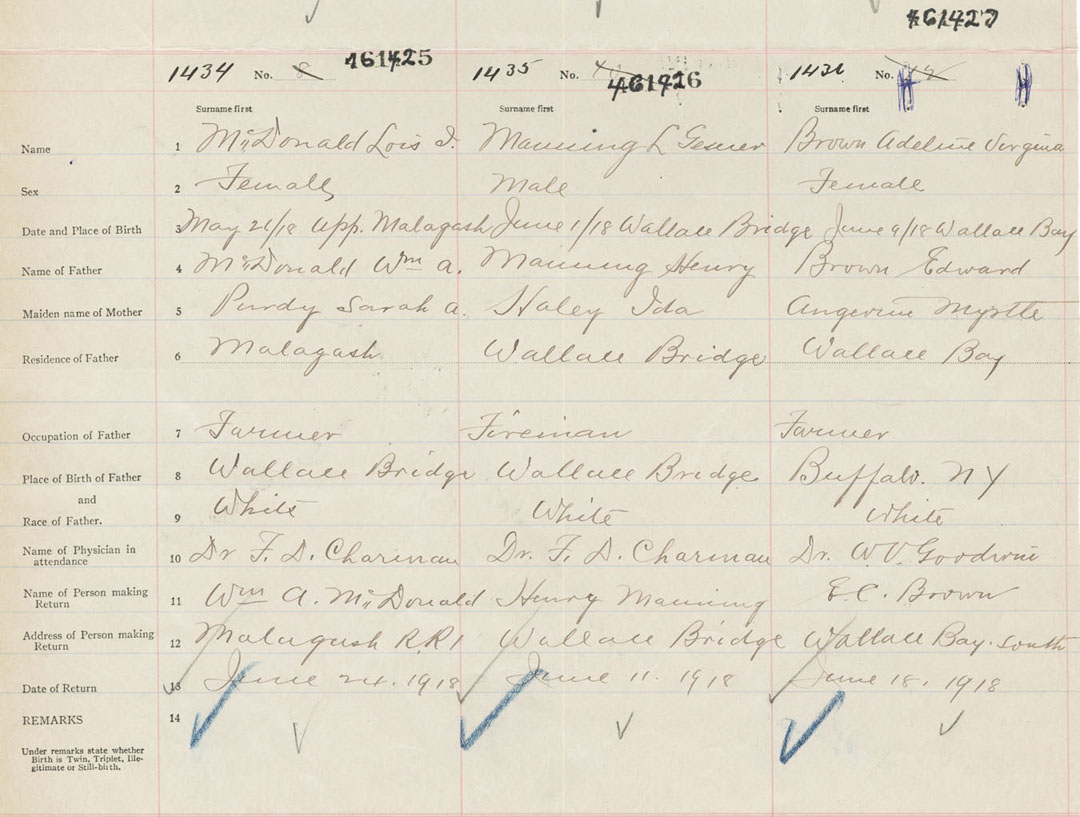 461427
1434 No. 8 461425 1435 No. 461426 1436 No.
Surname first Surname first Surname first
Name 1 McDonald Lois I. Manning L Gesner Brown Adeline Virginia
Sex 2 Female Male Female
Date and Place of Birth 3 May 21/18 Upp. Malagash June 1/18 Wallace Bridge June 9/18 Wallace Bay
Name of Father 4 McDonald Wm A. Manning Henry Brown Edward
Maiden name of Mother 5 Purdy Sarah A. Haley Ida Angevine Myrtle
Residence of Father 6 Malagash Wallace Bridge Wallace Bay
Occupation of Father 7 Farmer Fireman Farmer
Place of Birth of Father 8 Wallace Bridge Wallace Bridge Buffalo. N Y
and
Race of Father. 9 White White White
Name of Physician in attendance 10 Dr F. D. Charman Dr. F. D. Charman Dr. W. V. Goodwin
Name of Person making Return 11 Wm A. McDonald Henry Manning E. C. Brown
Address of Person making Return 12 Malagash R.R1 Wallace Bridge Wallace Bay. South
Date of Return 13 June 24. 1918 June 11. 1918 June 18. 1918
REMARKS 14
Under remarks state whether
Birth is Twin, Triplet, Ille-
gitimate or Still-birth.